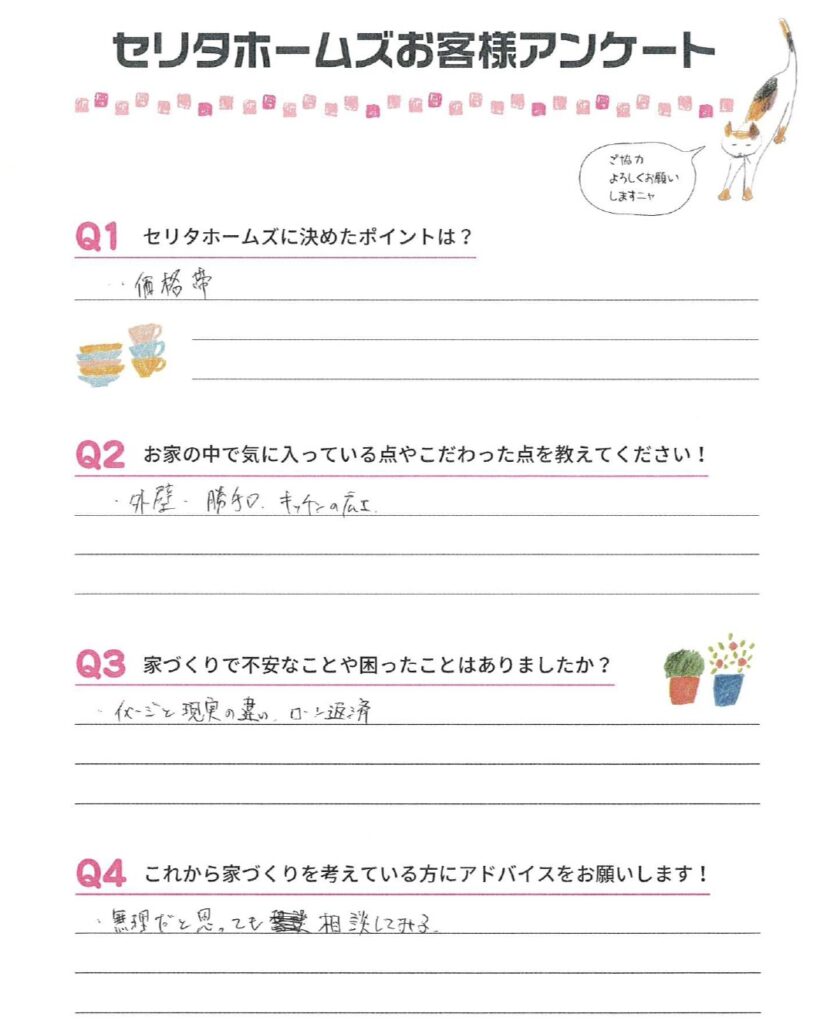 セリタホームズお客様アンケート
ご協力
よろしくお願い
しますニャ
Q1 セリタホームズに決めたポイントは？
・価格帯
Q2 お家の中で気に入っている点やこだわった点を教えてください！
・外壁・勝手口、キッチンの広さ
Q3 家づくりで不安なことや困ったことはありましたか？
・イメージと現実の違い、ローン返済
Q4 これから家づくりを考えている方にアドバイスをお願いします！
・無理だと思っても 相談してみる。